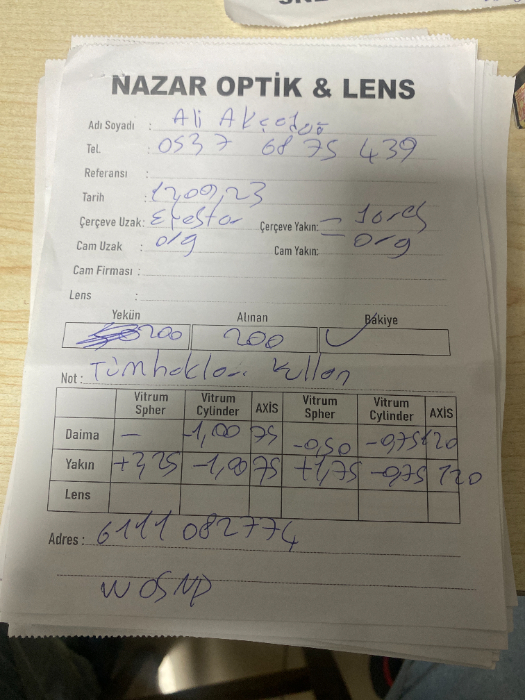 NAZAR OPTİK & LENS
Adı Soyadı : Ali
Tel. : 0537 68 75 439
Referansı :
Tarih : 12,09,23
Çerçeve Uzak: Çerçeve Yakın:
Cam Uzak : org Cam Yakın: org
Cam Firması :
Lens :
Yekün Alınan Bakiye
200 200
Not : Tüm hakları kullan
Vitrum Spher Vitrum Cylinder AXİS Vitrum Spher Vitrum Cylinder AXİS
Daima — -1,00 75 -0,50 -0,75 120
Yakın -1,00 75 +1,75 -0,75 120
Lens
Adres : 6111 082774